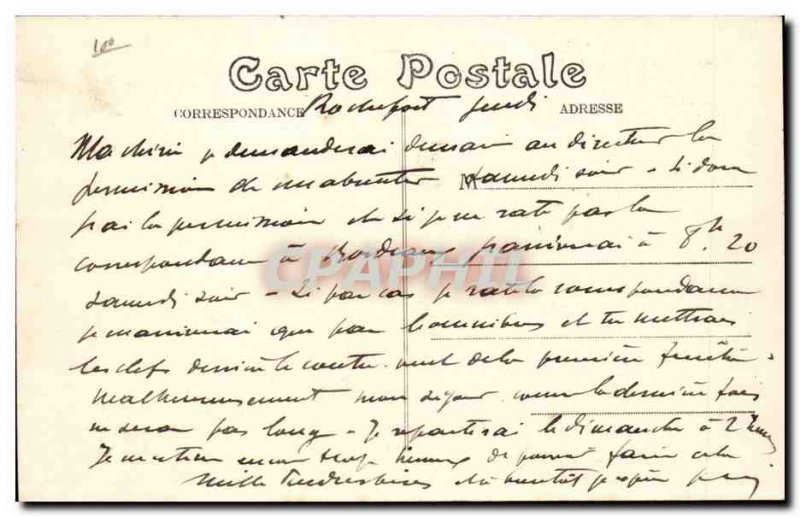 100
Carte Postale
CORRESPONDANCE Rochefort Jeudi ADRESSE
Ma chérie je demanderai demain au directeur la
permission de m'absenter M samedi soir - Si donc
j'ai la permission et si je ne rate pas la
correspondance à Bordeaux j'arriverai à 8h20
CPAPHIL
samedi soir - Si par cas je rate la correspondance
je n'arriverai que par l'omnibus et tu mettras
les clefs derrière le contrevent de la première fenêtre -
Malheureusement mon séjour comme la dernière fois
ne sera pas long - Je repartirai le dimanche à 2 heures
Je heureux de pouvoir faire cela
Mille tendresses et à bientôt